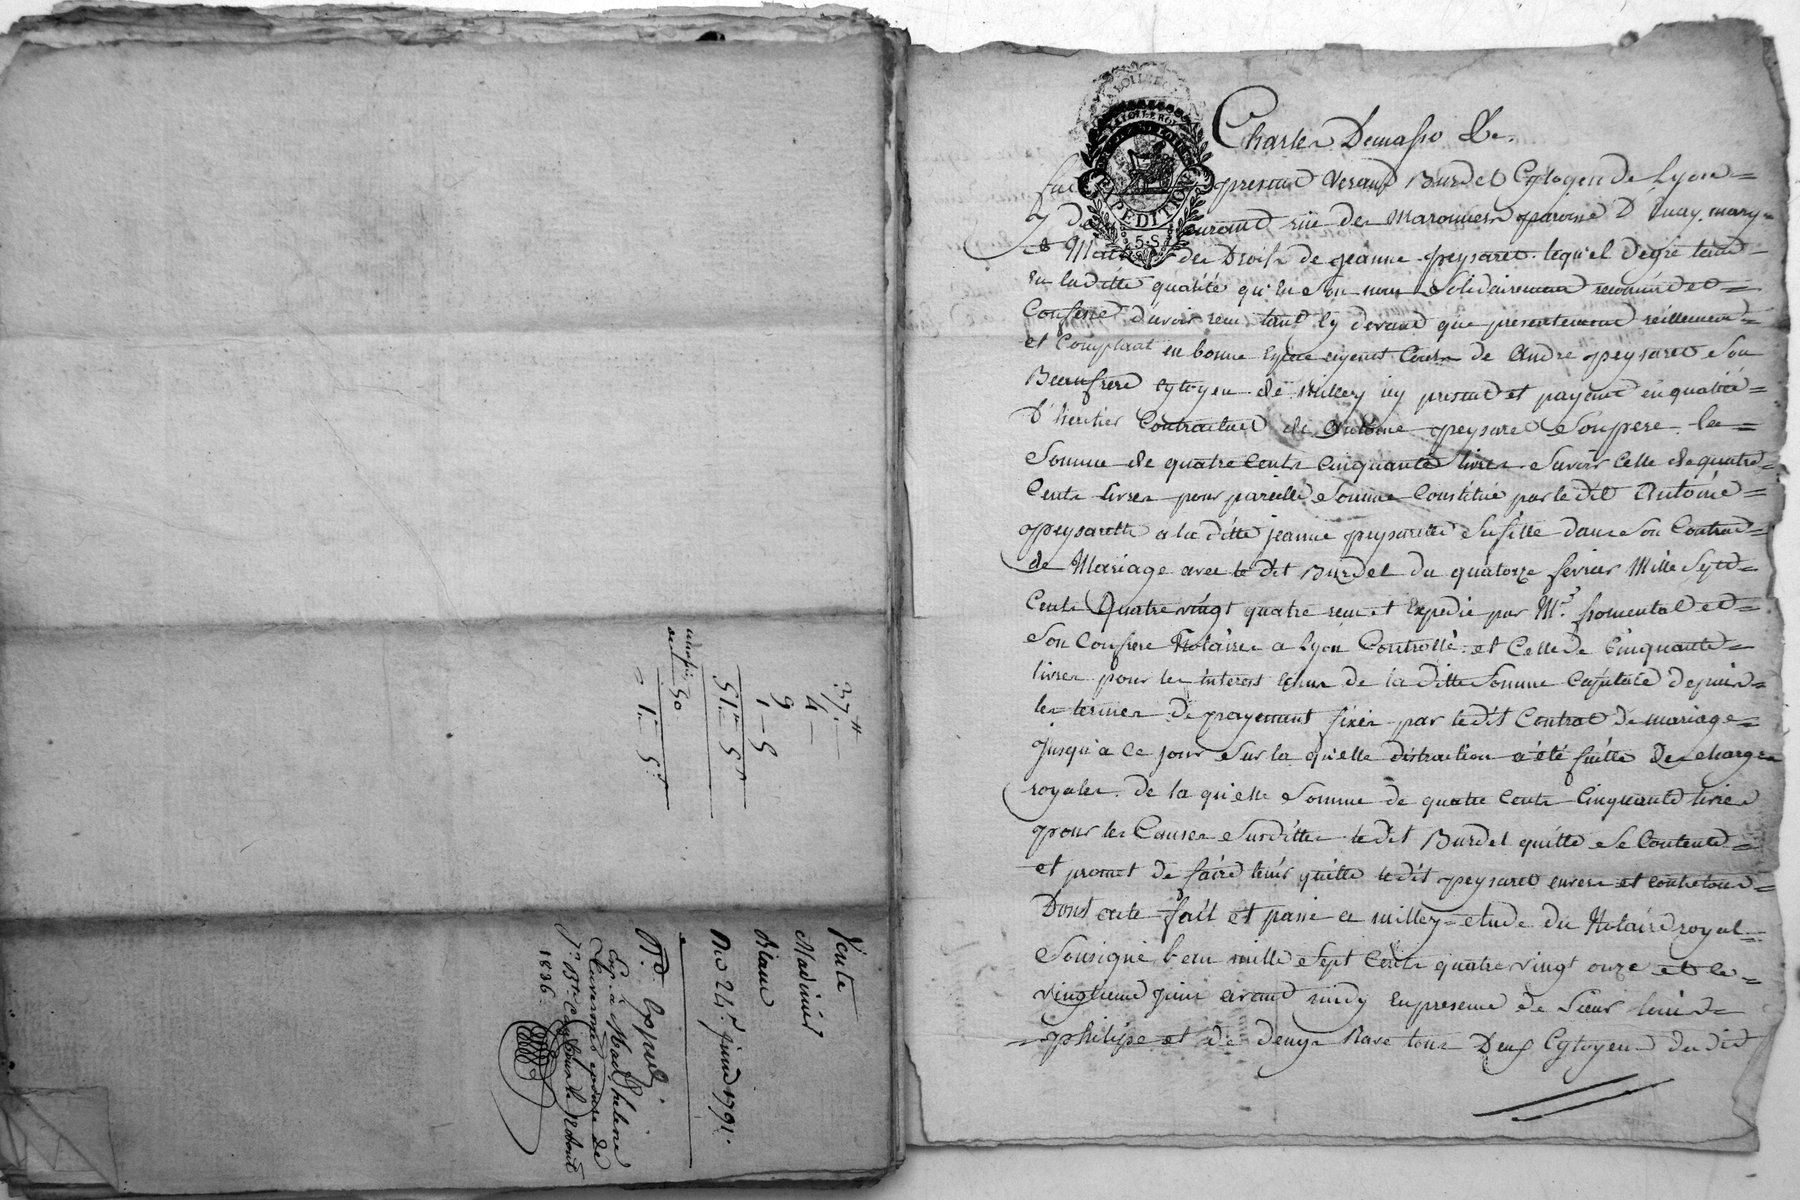 Vente
Madinier
Blanc
Du 24e juin 1791.
Exp. à Marie
épouse de
1836.
37.tt
4 —
9
1 — 5
51.tt 5s
50
1.tt — 5s
LA LOI LE ROI
EXPEDITION
5. S
Charles Demasso &c.
fut present Verand Burdel Cytoyen de Lyon =
y rue des Maronniers paroisse D'Enay, mary =
& des Droits de jeanne peysaret. lequ'el degré tend
en la ditte qualité qu'en son nom Solidairement reconnu et =
Confessé d'avoir reçu tant Cy devant que presentement réellement =
et Comptant en bonne espece ayent Cours de André peysaret Son
Beaufrere Cytoyen de Millery icy present et payent en qualité =
D'heritier Contractuel de Antoine peysaret Son pere. la =
Somme de quatre Cents Cinquante livres. Savoir Celle de quatre =
Cents livres pour pareille Somme Constitué par le dit Antoine =
peysarette a la ditte jeanne peysarette Sa fille dans Son Contrat =
de Mariage avec le dit Burdel du quatorze fevrier Mille Sept =
Cents Quatre vingt quatre reçu et Expedié par Me. fromental et =
Son Confrere Notaires a Lyon Controllé. et Celle de Cinquante =
livres pour les interets de la ditte Somme Capitale depuis =
les termes de payement fixés par le dit Contrat de mariage =
Jusqu'a Ce jour Sur la qu'elle distraction a été faitte Des charges
royales. de la qu'elle Somme de quatre Cents Cinquante livres
pour les Causes Surdittes le dit Burdel quitte Se Contente =
et promet de faire tenir quitte le dit peysaret envers et contre tous =
Dont acte fait et passé a Millery = etude du Notaire royal =
Soussigné l'an mille Sept Cents quatre vingt onze et le =
vingtieme juin avant midy En presence de Sieur loüis =
philipe et de denys Rave tous Deux Cytoyens du dit